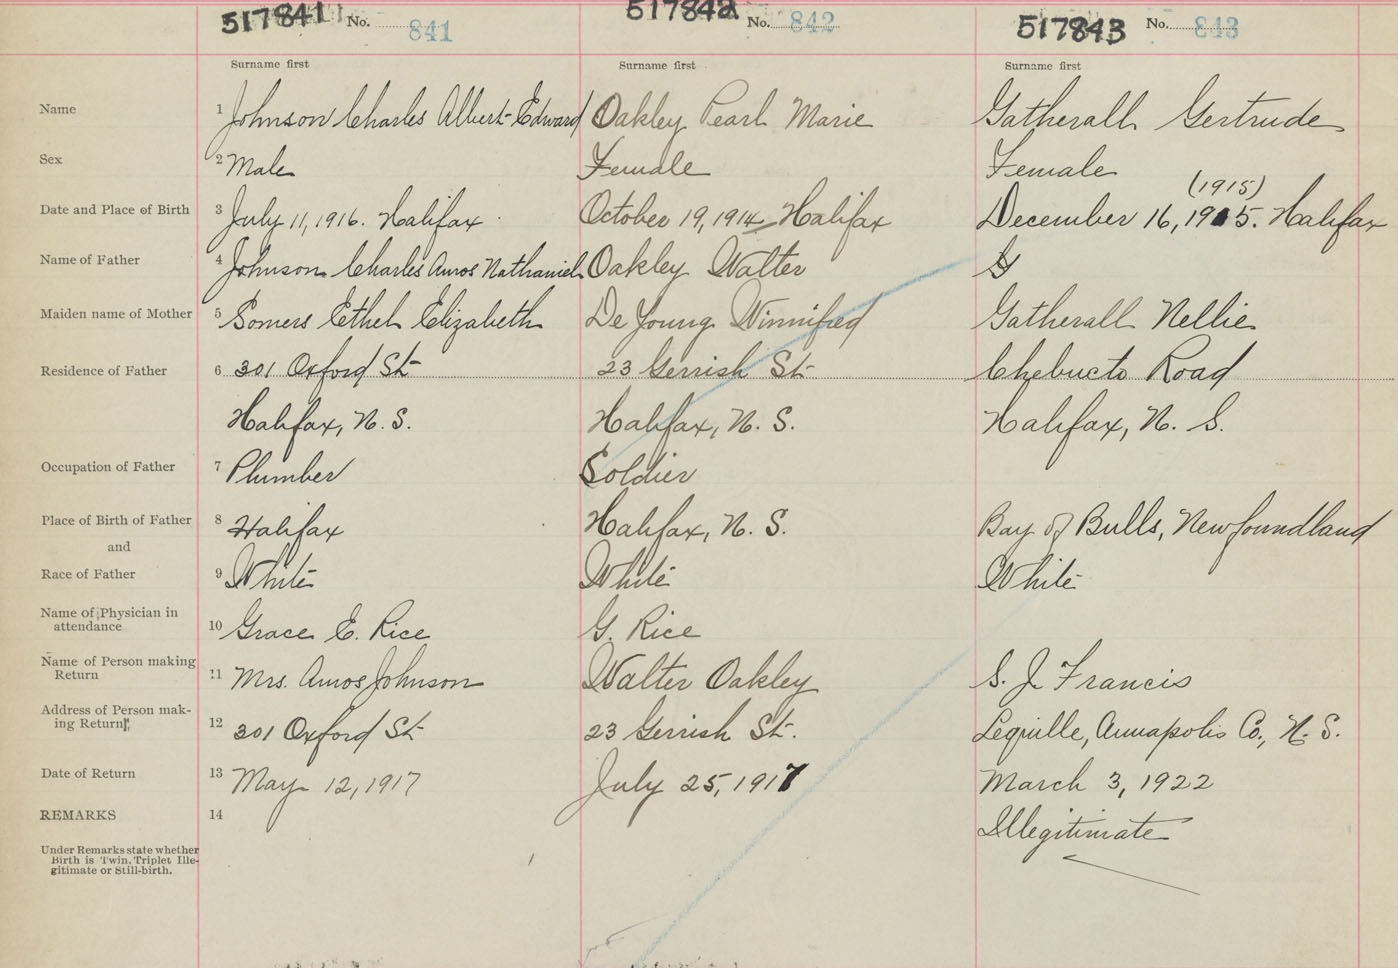 517841 No. 841 517842 No. 842 517843 No. 843
Surname first Surname first Surname first
Name 1 Johnson Charles Albert Edward Oakley Pearl Marie Gatherall Gertrude
Sex 2 Male Female Female
(1915)
Date and Place of Birth 3 July 11, 1916. Halifax October 19, 1914 Halifax December 16, 1915. Halifax
Name of Father 4 Johnson Charles Amos Nathaniel Oakley Walter G
Maiden name of Mother 5 Somers Ethel Elizabeth De Young Winnifred Gatherall Nellie
Residence of Father 6 301 Oxford St 23 Gerrish St Chebucto Road
Halifax, N. S. Halifax, N. S. Halifax, N. S.
Occupation of Father 7 Plumber Soldier
Place of Birth of Father 8 Halifax Halifax, N. S. Bay of Bulls, Newfoundland
and
Race of Father 9 White White White
Name of Physician in
attendance 10 Grace E. Rice G. Rice
Name of Person making
Return 11 Mrs. Amos Johnson Walter Oakley S. J. Francis
Address of Person mak-
ing Return 12 301 Oxford St 23 Gerrish St. Lequille, Annapolis Co., N. S.
Date of Return 13 May 12, 1917 July 25, 1917 March 3, 1922
REMARKS 14 Illegitimate
Under Remarks state whether
Birth is Twin, Triplet Ille-
gitimate or Still-birth.